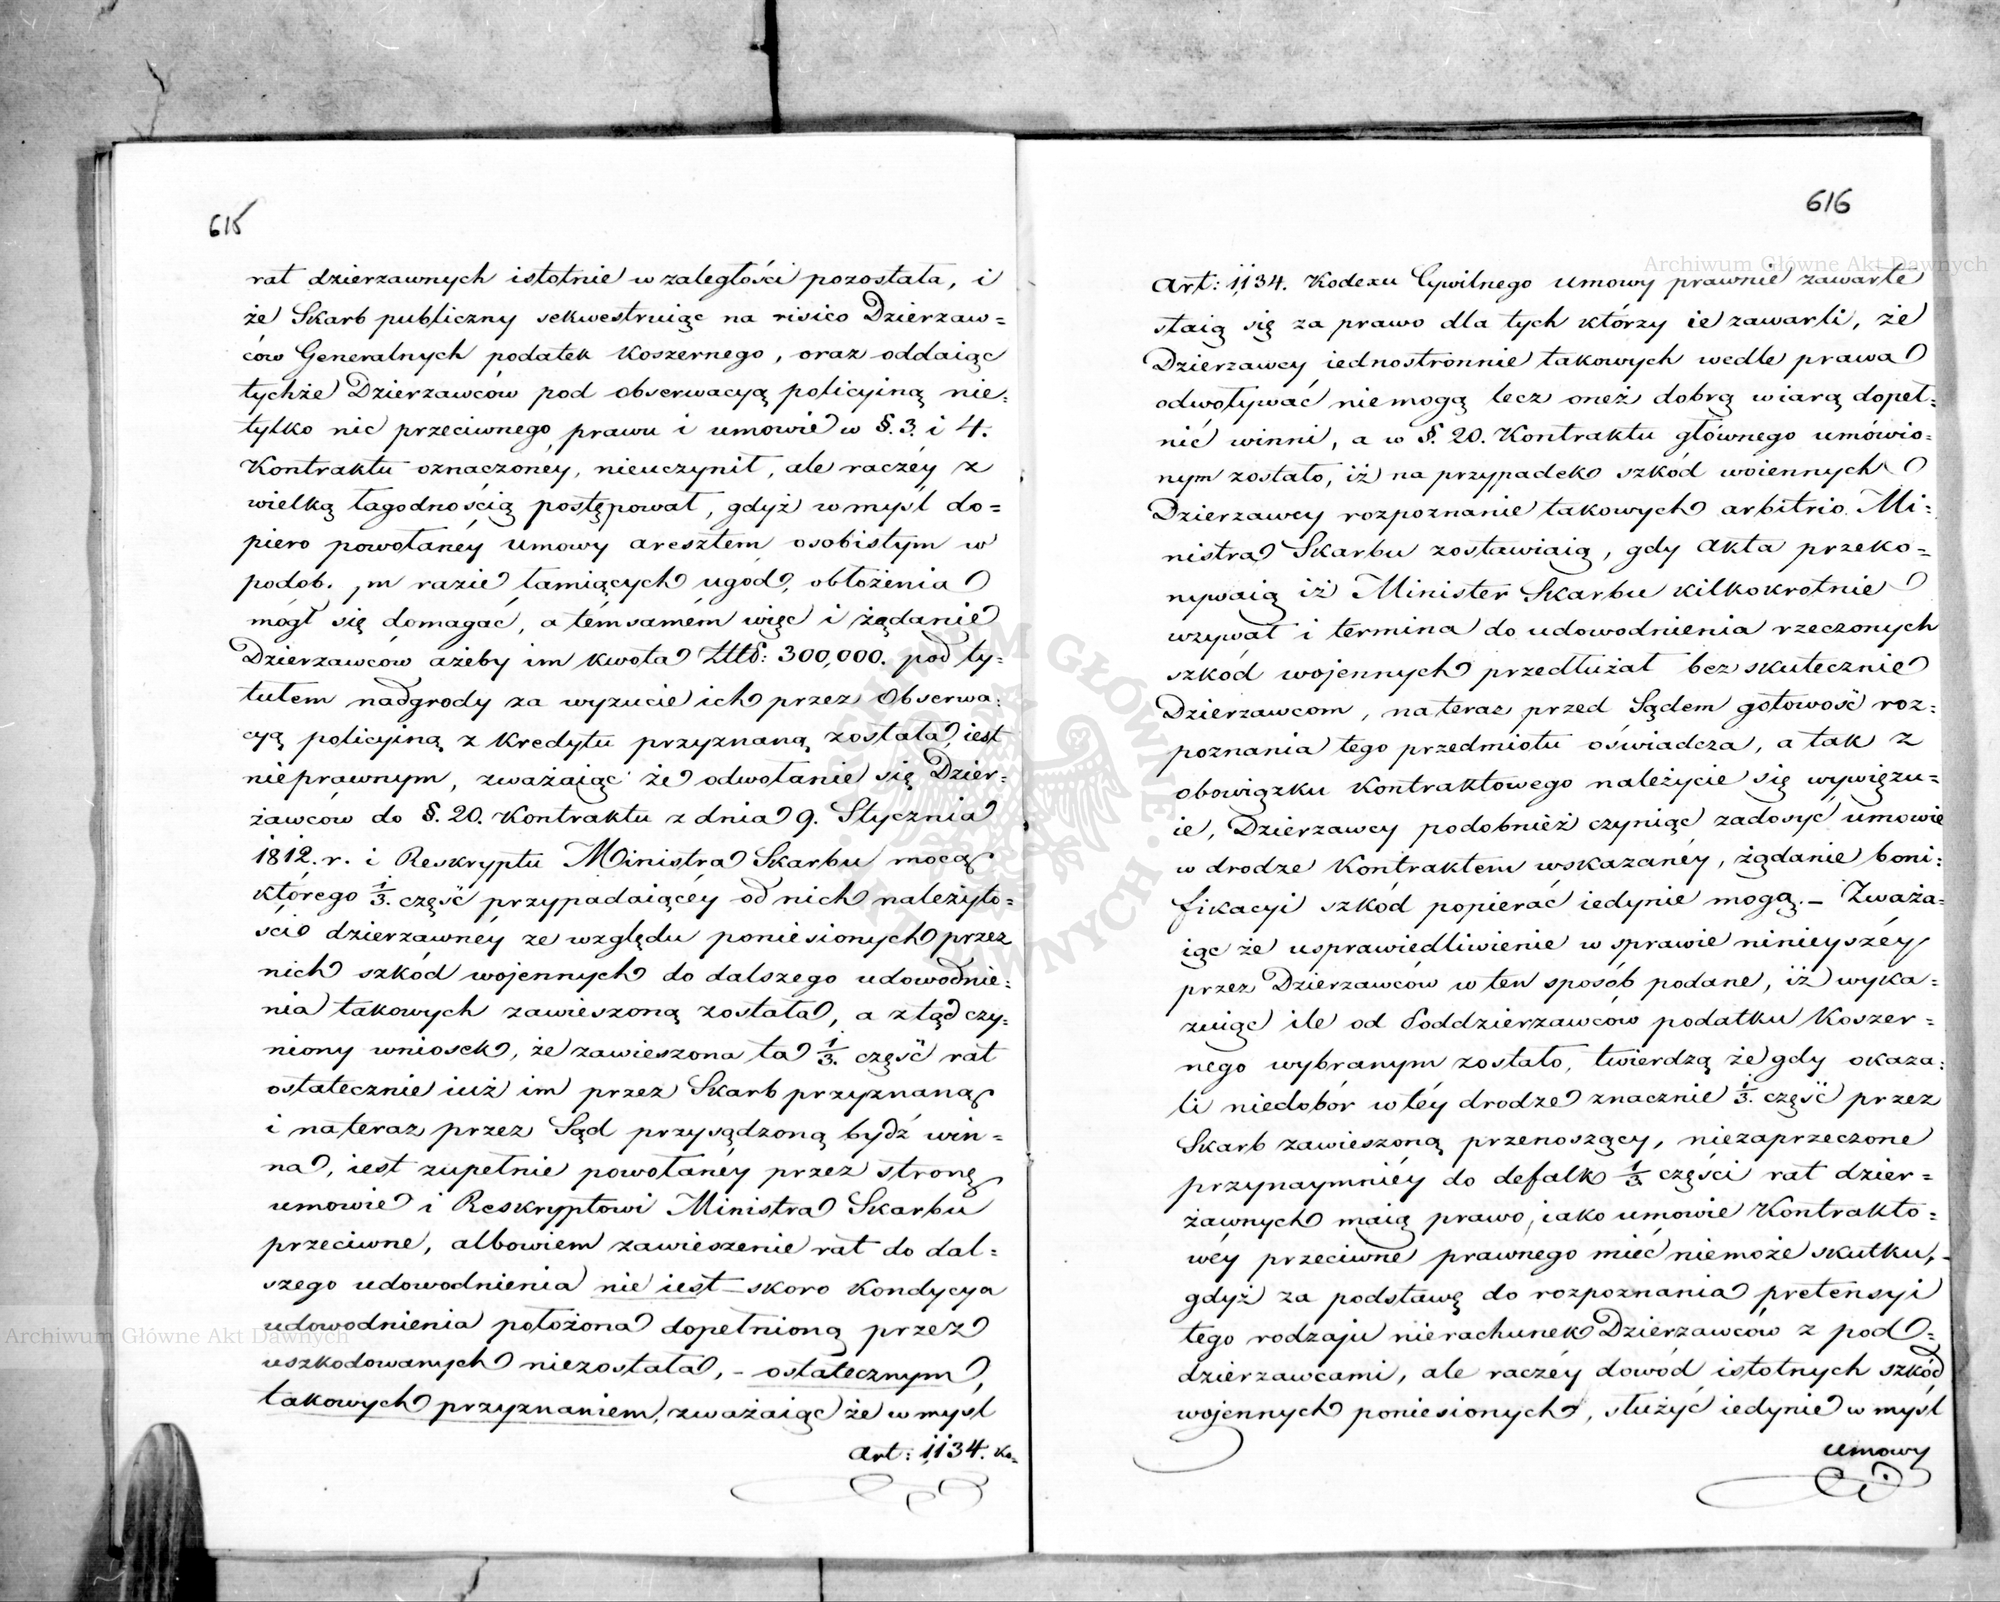 615
rat dzierzawnych istotnie w zaległości pozostała, i
że Skarb publiczny sekwestruiąc na risico Dzierzaw=
ców Generalnych podatek Koszernego, oraz oddaiąc
tychże Dzierzawców pod obserwacyą policyiną nie=
tylko nic przeciwnego prawu i umowie w §. 3. i 4.
Kontraktu oznaczonéy, nieuczynił, ale raczéy z
wielką łagodnością postępował, gdyż w myśl do=
piero powołanéy umowy aresztem osobistym w
podob. m razie łamiących ugód, obłożenia
mógł się domagać, a témsamém więc i żądanie
Dzierzawców ażeby im kwota Złłð: 300,000. pod ty=
tułem nadgrody za wyzucie ich przez Obserwa=
cyą policyiną z Kredytu przyznaną została, iest
nieprawnym, zważaiąc że odwołanie się Dzier=
żawców do §. 20. Kontraktu z dnia 9. Stycznia
1812. r. i Reskryptu Ministra Skarbu mocą
którego 1/3. część przypadaiącéy od nich należyto=
ści dzierzawnéy ze względu poniesionych przez
nich szkód wojennych do dalszego udowodnie=
nia takowych zawieszoną została, a ztąd czy=
niony wniosek, że zawieszona ta 1/3. część rat
ostatecznie iuż im przez Skarb przyznaną
i nateraz przez Sąd przysądzoną bydź win=
na, iest zupełnie powołanéy przez stronę
umowie i Reskryptowi Ministra Skarbu
przeciwne, albowiem zawieszenie rat do dal=
szego udowodnienia nie iest – skoro Kondycya
udowodnienia położona dopełnioną przez
uszkodowanych niezostała, – ostatecznym,
takowych przyznaniem, zważaiąc że w myśl
Art: 1134. Ko=
616
Art: 1134. Kodexu Cywilnego umowy prawnie zawarte
staią się za prawo dla tych którzy ie zawarli, że
Dzierzawcy iednostronnie takowych wedle prawa
odwoływać niemogą lecz oneż dobrą wiarą dopeł=
nić winni, a w §. 20. Kontraktu głównego umówio=
nym zostało, iż na przypadek szkód woiennych
Dzierzawcy rozpoznanie takowych arbitrio Mi=
nistra Skarbu zostawiaią, gdy Akta przeko=
nywaią iż Minister Skarbu kilkokrotnie
wzywał i termina do udowodnienia rzeczonych
szkód wojennych przedłużał bezskutecznie
Dzierzawcom, nateraz przed Sądem gotowość roz=
poznania tego przedmiotu oświadcza, a tak z
obowiązku Kontraktowego należycie się wywięzu=
ie, Dzierzawcy podobnież czyniąc zadosyć umowie
w drodze Kontraktem wskazanéy, żądanie boni=
fikacyi szkód popierać iedynie mogą. – Zważa=
iąc że usprawiedliwienie w sprawie ninieyszéy
przez Dzierzawców w ten sposób podane, iż wyka=
zuiąc ile od Poddzierzawców podatku Koszer=
nego wybranym zostało, twierdzą że gdy okaza=
li niedobór w téy drodze znacznie 1/3. część przez
Skarb zawieszoną przenoszący, niezaprzeczone
przynaymniéy do defalk 1/3 części rat dzier=
żawnych maią prawo, iako umowie Kontrakto=
wéy przeciwne prawnego mieć niemoże skutku,
gdyż za podstawę do rozpoznania pretensyi
tego rodzaju nie rachunek Dzierzawców z pod=
dzierzawcami, ale raczéy dowód istotnych szkód
wojennych poniesionych, służyć iedynie w myśl
umowy
Archiwum Główne Akt Dawnych
Archiwum Główne Akt Dawnych
ARCHIWUM GŁÓWNE · AKT DAWNYCH ·